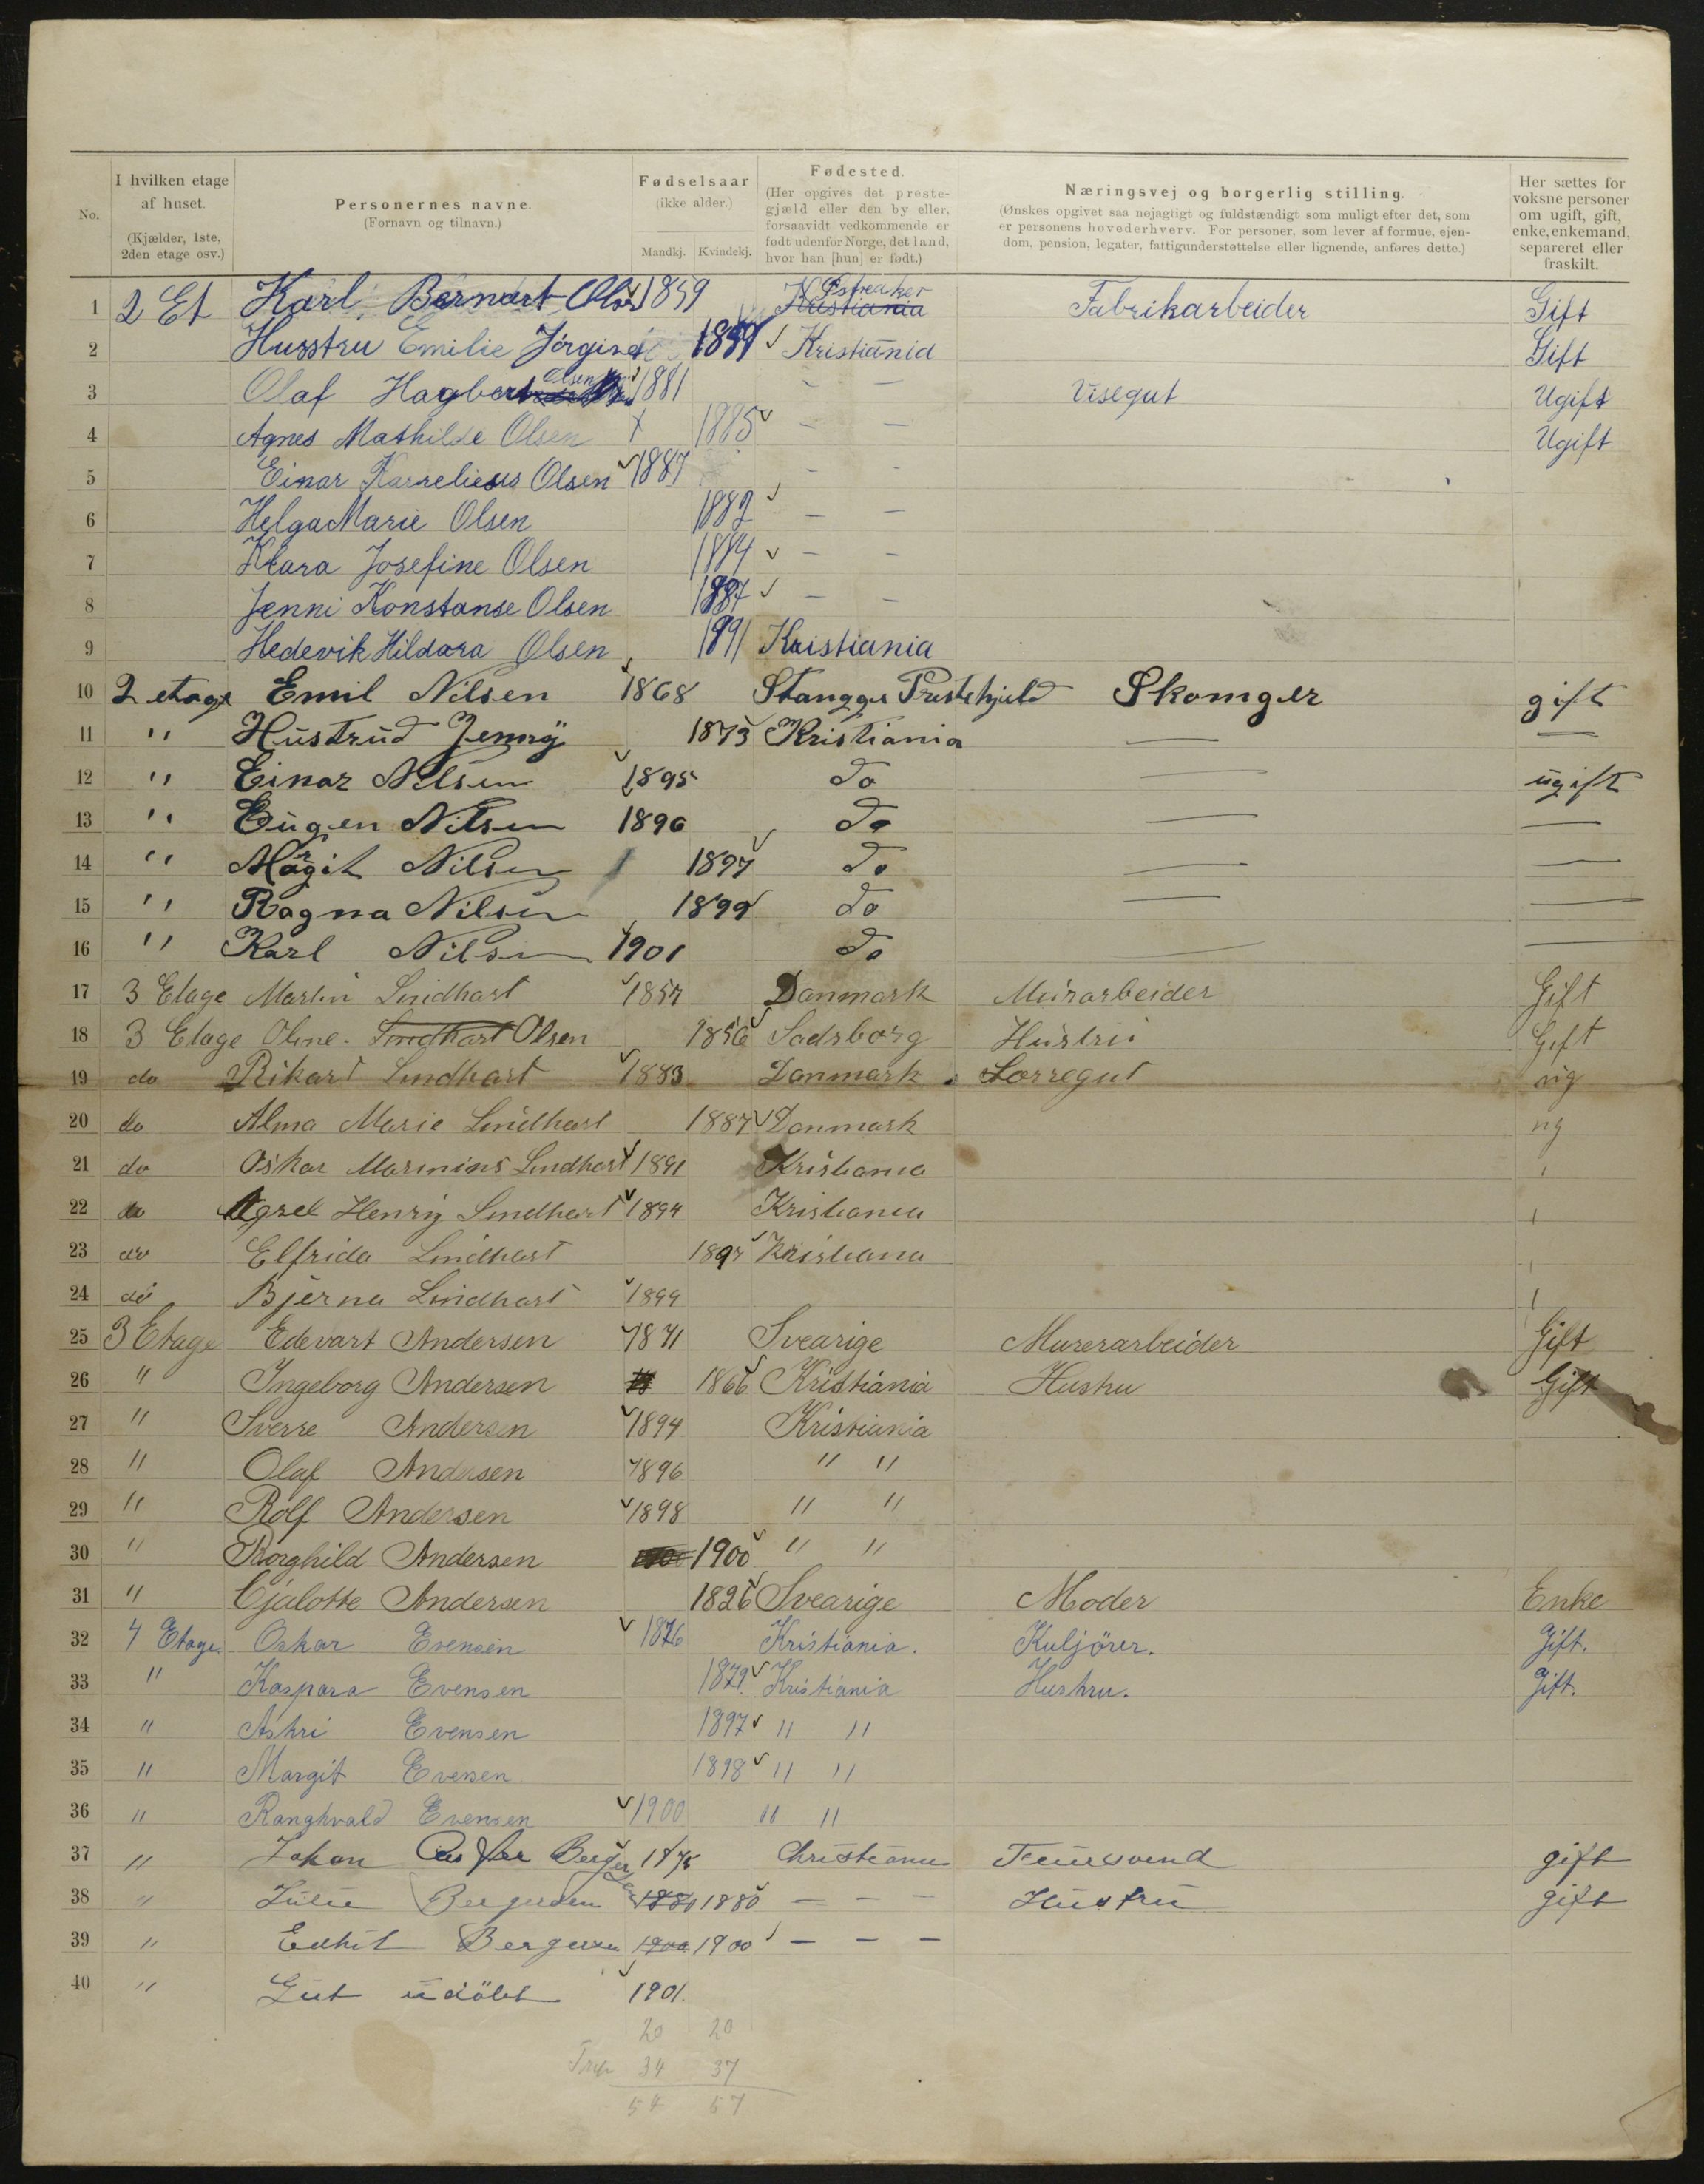 No.
I hvilken etage af huset.
(Kjælder, 1ste, 2den etage osv.)
Personernes navne.
(Fornavn og tilnavn.)
Fødselsaar
(ikke alder.)
Mandkj. Kvindekj.
Fødested.
(Her opgives det prestegjæld eller den by eller, forsaavidt vedkommende er født udenfor Norge, det land, hvor han [hun] er født.)
Næringsvej og borgerlig stilling.
(Ønskes opgivet saa nøjagtigt og fuldstændigt som muligt efter det, som er personens hovederhverv. For personer, som lever af formue, ejendom, pension, legater, fattigunderstøttelse eller lignende, anføres dette.)
Her sættes for voksne personer om ugift, gift, enke, enkemand, separeret eller fraskilt.
1 2 Et Karl Bernart Olsen 1859 Kristiania Østreaker Fabrikarbeider Gift
2 Husstru Emilie Jørgine Kristianid Gift
3 Olaf Hagbart Olsen 1881 – – Visegut Ugift
4 Agnes Mathilde Olsen 1885 – – Ugift
5 Einar Olsen 1887 – –
6 Helga Marie Olsen 1882 – –
7 Klara Josefine Olsen 1884 – –
8 Jenni Konstanse Olsen 1887 – –
9 Hedevik Hildora Olsen 1891 Kristiania
10 2 etage Emil Nilsen 1868 Stangge Skomger gift
11 " Hustrud Jenny 1873 Kristiania — —
12 " Einar Nilsen 1895 do — ugift
13 " Eugen Nilsen 1896 do — —
14 " Margit Nilsen 1897 do — —
15 " Ragna Nilsen 1899 do — —
16 " Karl Nilsen 1901 do — —
17 3 Etage Martin Lindhart 1857 Danmark Murarbeider Gift
18 3 Etage Oline Lindhart Olsen 1856 Sadsborg Hustru Gift
19 do Rikart Lindhart 1883 Danmark Lorregut ug
20 do Alma Marie Lindhart 1887 Danmark ug
21 do Oskar Marinius Lindhart 1891 Kristiania
22 do Henry Lindhart 1894 Kristiania
23 do Elfrida Lindhart 1897 Kristiana
24 do Bjerne Lindhart 1899
25 3 Etage Edevart Andersen 1871 Svearige Murerarbeider Gift
26 " Ingeborg Andersen 1866 Kristiania Hustru Gift
27 " Sverre Andersen 1894 Kristiania
28 " Olaf Andersen 1896 " "
29 " Rolf Andersen 1898 " "
30 " Borghild Andersen 1900 " "
31 " Cjalotte Andersen 1826 Svearige Moder Enke
32 4 Etage. Oskar Evensen 1876 Kristiania. Kuljörer. Gift.
33 " Kaspara Evensen 1879. Kristiania Hustru. Gift.
34 " Astri Evensen 1897 " "
35 " Margit Evensen 1898 " "
36 " Ranghvald Evensen 1900 " "
37 " Johan Berger 1875 Christiania gift
38 " Julie Bergersen 1880 1880 – – – Hustru gift
39 " Edhit Bergersen 1900 1900 – – –
40 " Gut udöbt 1901.
20 20
34 37
54 57